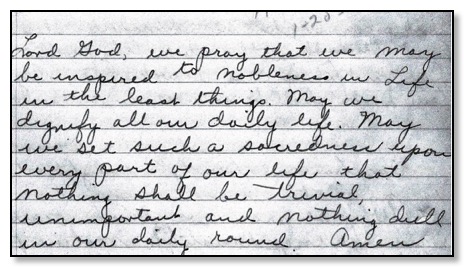 1-20-
Lord God, we pray that we may
be inspired to nobleness in Life
in the least things. May we
dignify all our daily life. May
we set such a sacredness upon
every part of our life that
nothing shall be trivial,
unimportant and nothing dull
in our daily round. Amen